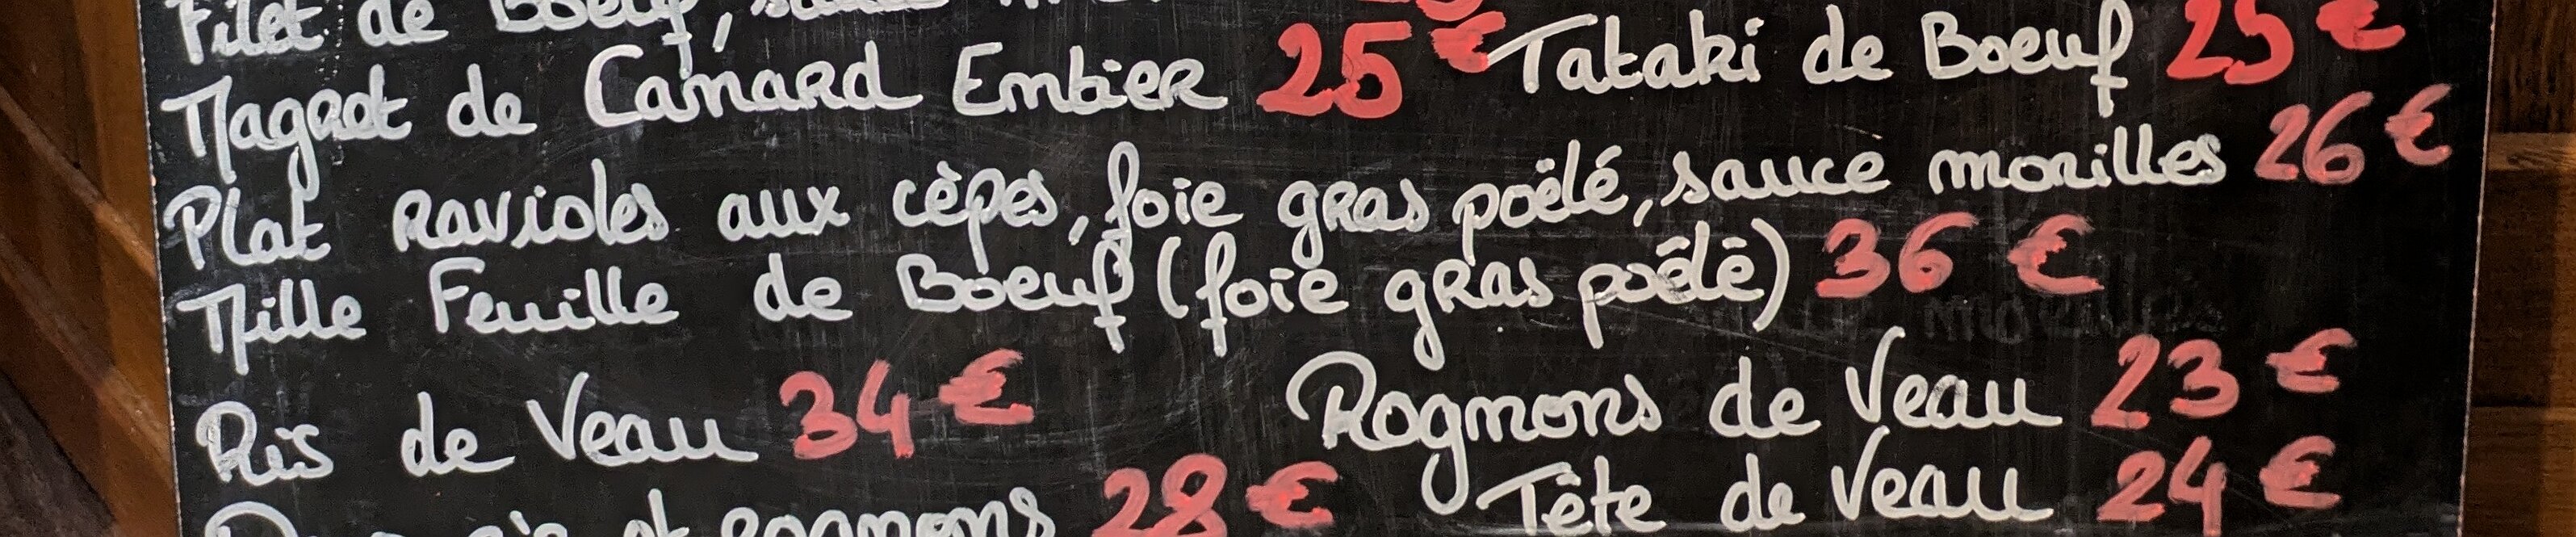 Filet de Boeuf, sauce
Magret de Canard Entier 25 € Tataki de Boeuf 25 €
Plat Ravioles aux cèpes, foie gras poëlé, sauce morilles 26 €
Mille Feuille de Boeuf (foie gras poëlé) 36 €
Ris de Veau 34 € Rognons de Veau 23 €
et rognons 28 € Tête de Veau 24 €